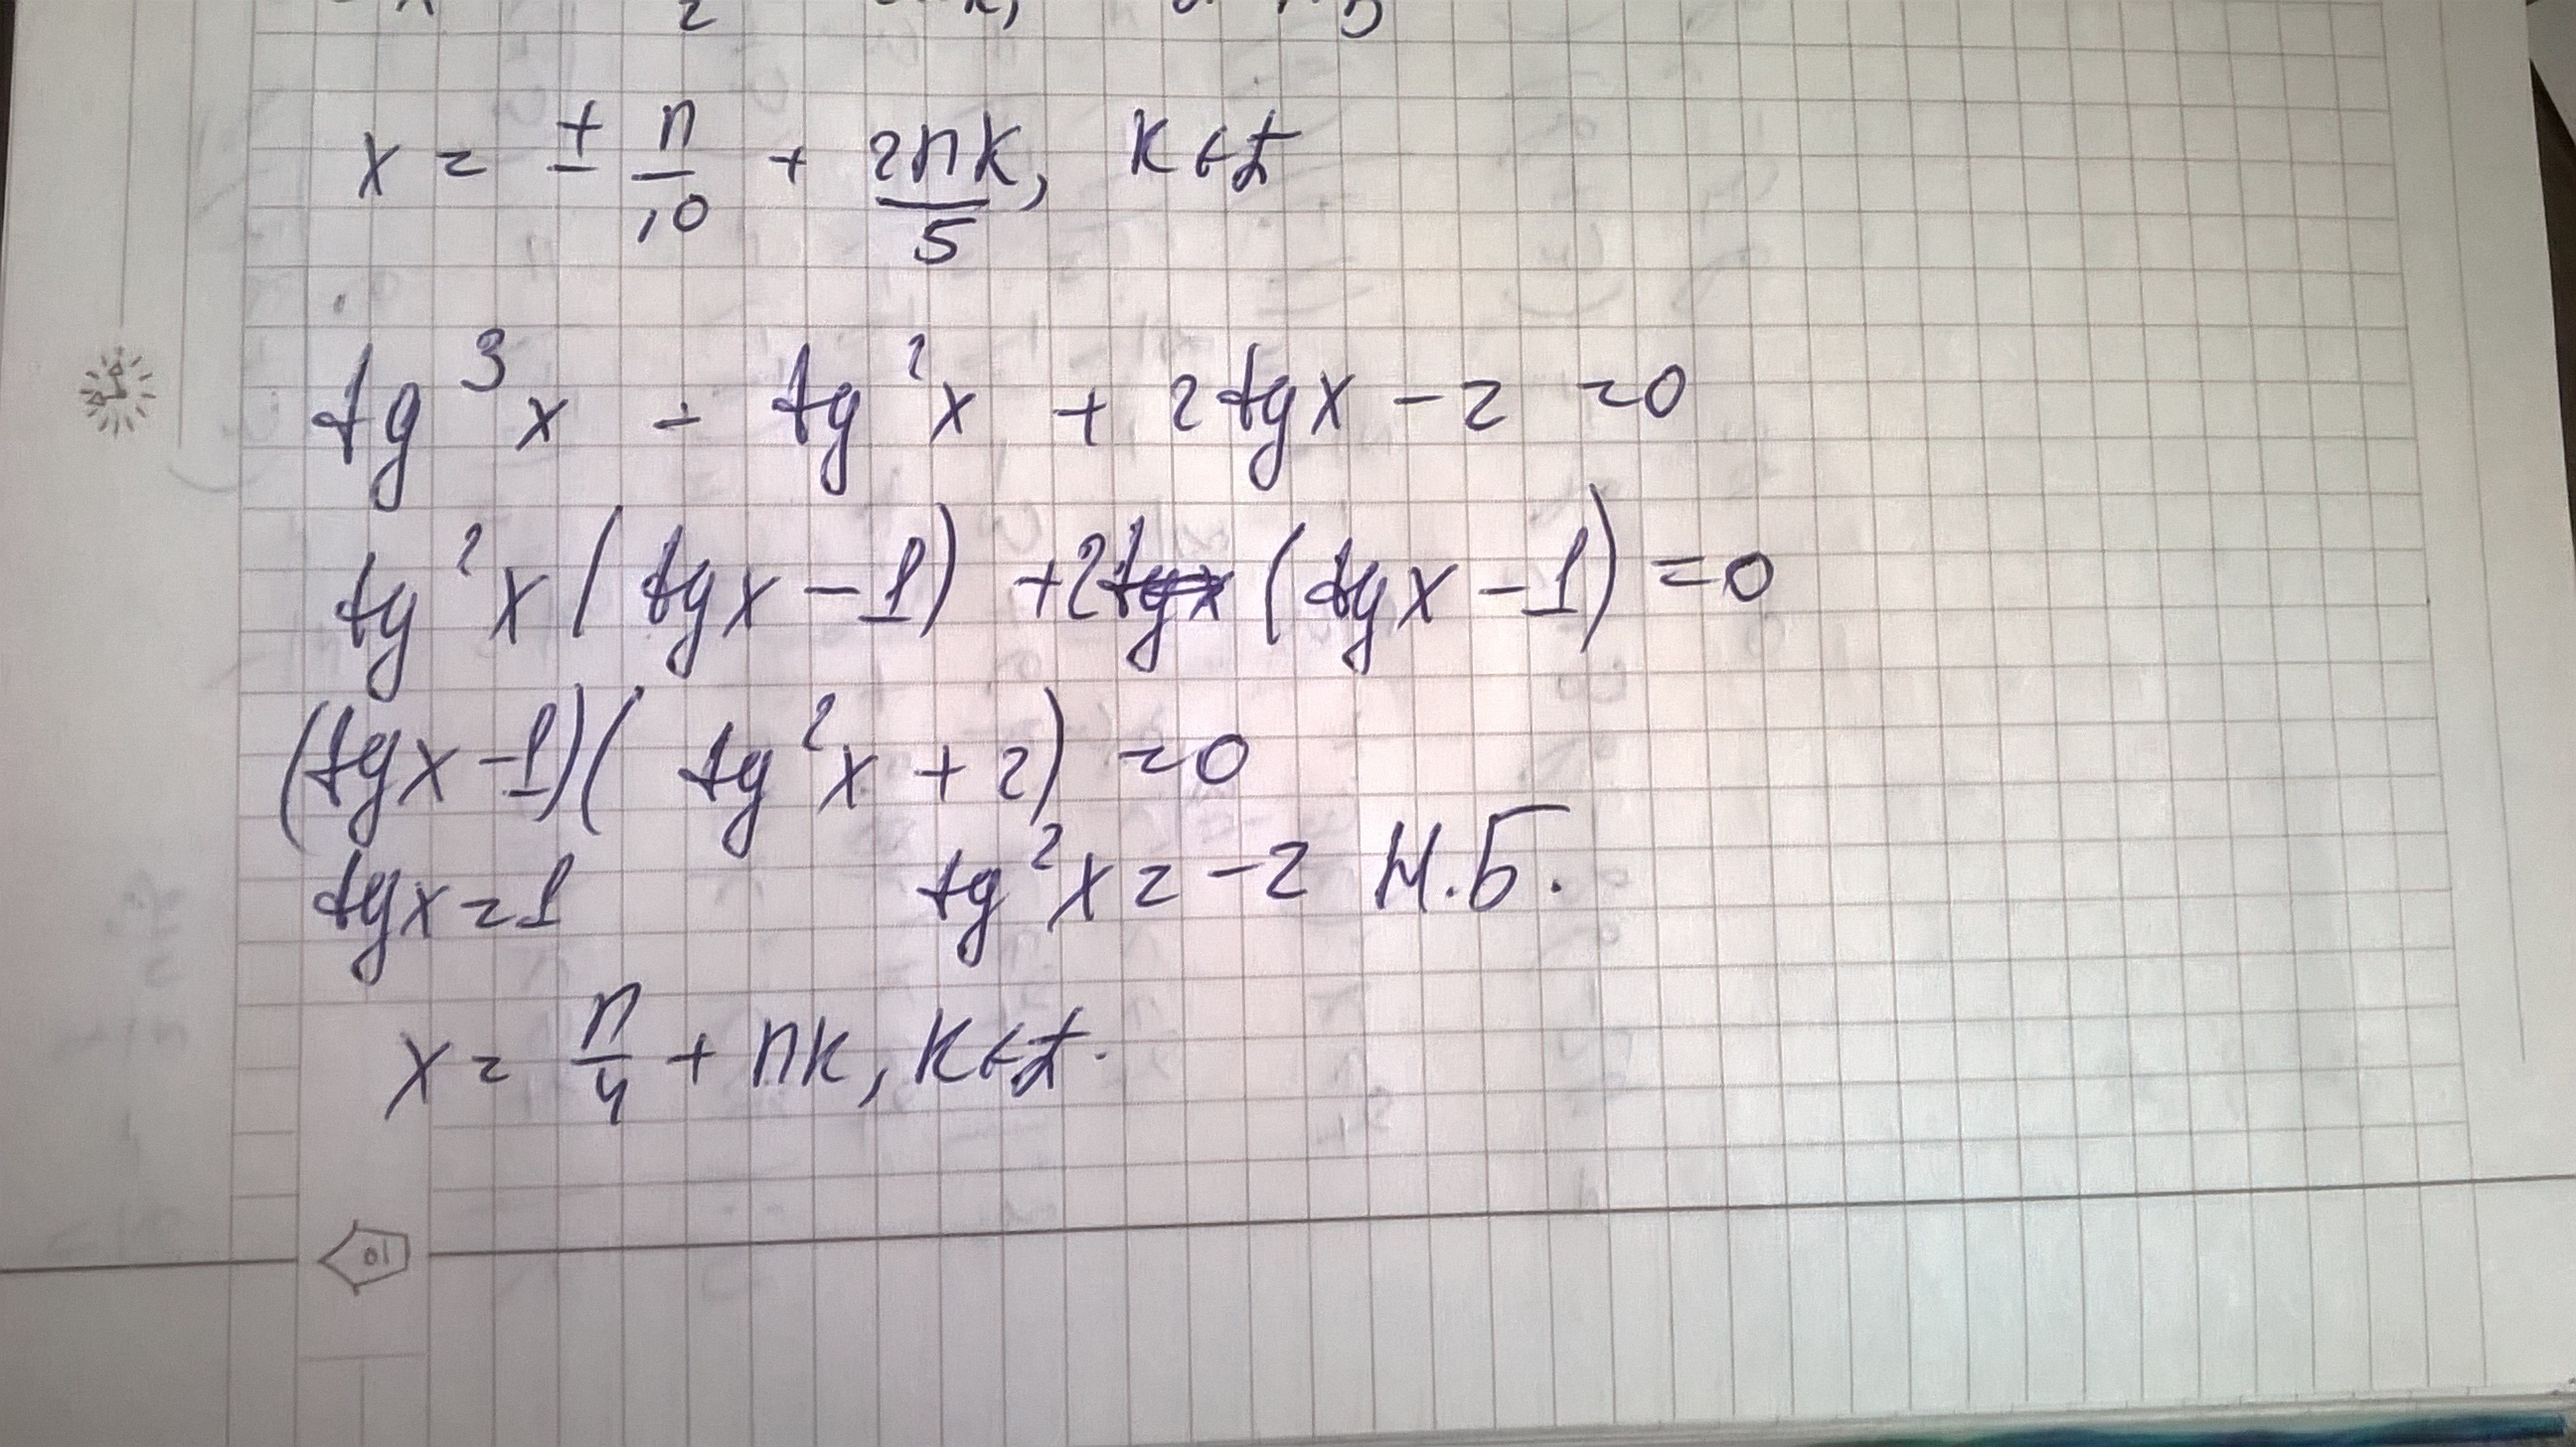 x = ± π/10 + 2πk/5, k ∈ Z
tg³x - tg²x + 2tgx - 2 = 0
tg²x (tgx - 1) + 2 (tgx - 1) = 0
(tgx - 1)(tg²x + 2) = 0
tgx = 1 tg²x = -2 Н.Б.
x = π/4 + πk, k ∈ Z.
10